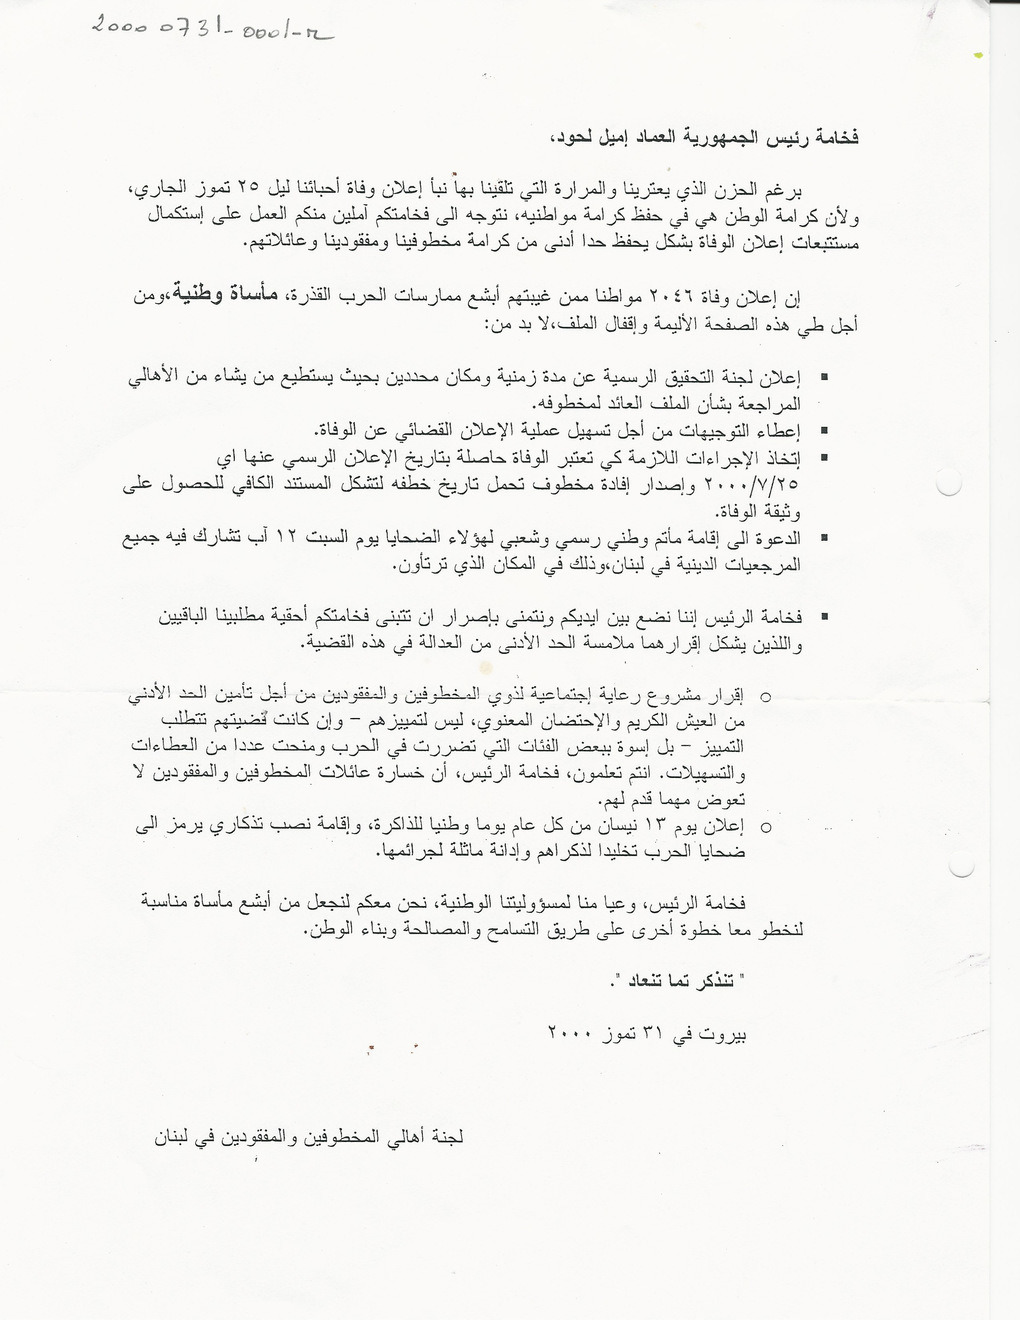 20000731-0001-r
فخامة رئيس الجمهورية العماد إميل لحود،
برغم الحزن الذي يعترينا والمرارة التي تلقينا بها نبأ إعلان وفاة أحبائنا ليل ٢٥ تموز الجاري،
ولأن كرامة الوطن هي في حفظ كرامة مواطنيه، نتوجه الى فخامتكم آملين منكم العمل على إستكمال
مستتبعات إعلان الوفاة بشكل يحفظ حدا أدنى من كرامة مخطوفينا ومفقودينا وعائلاتهم.
إن إعلان وفاة ٢٠٤٦ مواطنا ممن غيبتهم أبشع ممارسات الحرب القذرة، مأساة وطنية،ومن
أجل طي هذه الصفحة الأليمة وإقفال الملف،لا بد من:
▪ إعلان لجنة التحقيق الرسمية عن مدة زمنية ومكان محددين بحيث يستطيع من يشاء من الأهالي
المراجعة بشأن الملف العائد لمخطوفه.
▪ إعطاء التوجيهات من أجل تسهيل عملية الإعلان القضائي عن الوفاة.
▪ إتخاذ الإجراءات اللازمة كي تعتبر الوفاة حاصلة بتاريخ الإعلان الرسمي عنها اي
٢٠٠٠/٧/٢٥ وإصدار إفادة مخطوف تحمل تاريخ خطفه لتشكل المستند الكافي للحصول على
وثيقة الوفاة.
▪ الدعوة الى إقامة مأتم وطني رسمي وشعبي لهؤلاء الضحايا يوم السبت ١٢ آب تشارك فيه جميع
المرجعيات الدينية في لبنان،وذلك في المكان الذي ترتأون.
▪ فخامة الرئيس إننا نضع بين ايديكم ونتمنى بإصرار ان تتبنى فخامتكم أحقية مطلبينا الباقيين
واللذين يشكل إقرارهما ملامسة الحد الأدنى من العدالة في هذه القضية.
o إقرار مشروع رعاية إجتماعية لذوي المخطوفين والمفقودين من أجل تأمين الحد الأدني
من العيش الكريم والإحتضان المعنوي، ليس لتمييزهم – وإن كانت قضيتهم تتطلب
التمييز – بل إسوة ببعض الفئات التي تضررت في الحرب ومنحت عددا من العطاءات
والتسهيلات. انتم تعلمون، فخامة الرئيس، أن خسارة عائلات المخطوفين والمفقودين لا
تعوض مهما قدم لهم.
o إعلان يوم ١٣ نيسان من كل عام يوما وطنيا للذاكرة، وإقامة نصب تذكاري يرمز الى
ضحايا الحرب تخليدا لذكراهم وإدانة ماثلة لجرائمها.
فخامة الرئيس، وعيا منا لمسؤوليتنا الوطنية، نحن معكم لنجعل من أبشع مأساة مناسبة
لنخطو معا خطوة أخرى على طريق التسامح والمصالحة وبناء الوطن.
" تنذكر تما تنعاد ".
بيروت في ٣١ تموز ٢٠٠٠
لجنة أهالي المخطوفين والمفقودين في لبنان